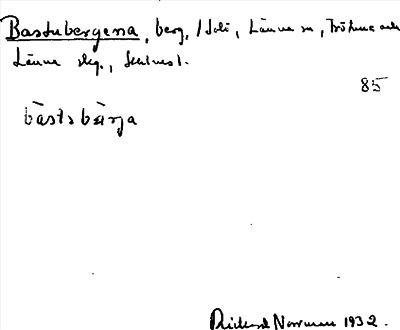 Bastubergena, berg, i Sali, Länna sn, Fröhna och
Länna skg.,
85
bàstsbärja
Rickard Norrman 1932.